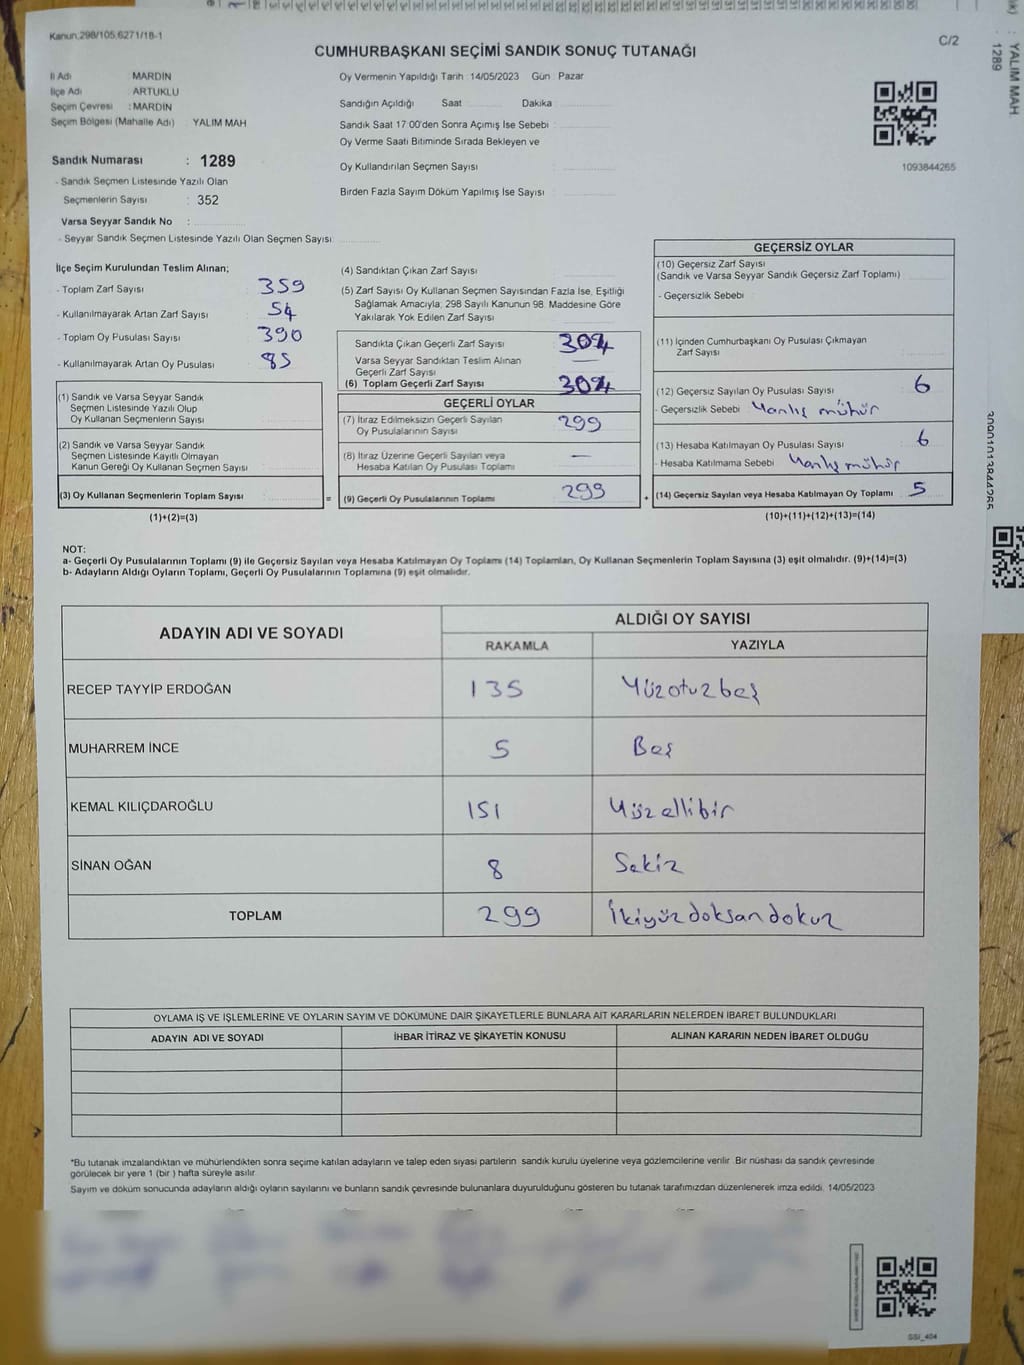 Kanun;298/105,6271/18-1
CUMHURBAŞKANI SEÇİMİ SANDIK SONUÇ TUTANAĞI
C/2
YALIM MAH.
1289
İl Adı MARDİN
İlçe Adı ARTUKLU
Seçim Çevresi : MARDİN
Seçim Bölgesi (Mahalle Adı) : YALIM MAH
Sandık Numarası : 1289
- Sandık Seçmen Listesinde Yazılı Olan
Seçmenlerin Sayısı : 352
Varsa Seyyar Sandık No :
- Seyyar Sandık Seçmen Listesinde Yazılı Olan Seçmen Sayısı
Oy Vermenin Yapıldığı Tarih :14/05/2023 Gün : Pazar
Sandığın Açıldığı Saat Dakika
Sandık Saat 17:00'den Sonra Açımış İse Sebebi :
Oy Verme Saati Bitiminde Sırada Bekleyen ve
Oy Kullandırılan Seçmen Sayısı :
Birden Fazla Sayım Döküm Yapılmış İse Sayısı :
1093844265
İlçe Seçim Kurulundan Teslim Alınan;
- Toplam Zarf Sayısı : 359
- Kullanılmayarak Artan Zarf Sayısı : 54
- Toplam Oy Pusulası Sayısı : 390
- Kullanılmayarak Artan Oy Pusulası : 85
(1) Sandık ve Varsa Seyyar Sandık
Seçmen Listesinde Yazılı Olup
Oy Kullanan Seçmenlerin Sayısı
(2) Sandık ve Varsa Seyyar Sandık
Seçmen Listesinde Kayıtlı Olmayan
Kanun Gereği Oy Kullanan Seçmen Sayısı
(3) Oy Kullanan Seçmenlerin Toplam Sayısı :
(1)+(2)=(3)
=
(4) Sandıktan Çıkan Zarf Sayısı
(5) Zarf Sayısı Oy Kullanan Seçmen Sayısından Fazla İse, Eşitliği
Sağlamak Amacıyla; 298 Sayılı Kanunun 98. Maddesine Göre
Yakılarak Yok Edilen Zarf Sayısı
Sandıkta Çıkan Geçerli Zarf Sayısı : 304
Varsa Seyyar Sandıktan Teslim Alınan
Geçerli Zarf Sayısı : —
(6) Toplam Geçerli Zarf Sayısı : 304
GEÇERLİ OYLAR
(7) İtiraz Edilmeksizin Geçerli Sayılan
Oy Pusulalarının Sayısı : 299
(8) İtiraz Üzerine Geçerli Sayılan veya
Hesaba Katılan Oy Pusulası Toplamı : —
(9) Geçerli Oy Pusulalarının Toplamı : 299
+
GEÇERSİZ OYLAR
(10) Geçersiz Zarf Sayısı
(Sandık ve Varsa Seyyar Sandık Geçersiz Zarf Toplamı)
- Geçersizlik Sebebi :
(11) İçinden Cumhurbaşkanı Oy Pusulası Çıkmayan
Zarf Sayısı
(12) Geçersiz Sayılan Oy Pusulası Sayısı : 6
- Geçersizlik Sebebi : Yanlış mühür
(13) Hesaba Katılmayan Oy Pusulası Sayısı : 6
- Hesaba Katılmama Sebebi : Yanlış mühür
(14) Geçersiz Sayılan veya Hesaba Katılmayan Oy Toplamı : 5
(10)+(11)+(12)+(13)=(14)
NOT:
a- Geçerli Oy Pusulalarının Toplamı (9) ile Geçersiz Sayılan veya Hesaba Katılmayan Oy Toplamı (14) Toplamları, Oy Kullanan Seçmenlerin Toplam Sayısına (3) eşit olmalıdır. (9)+(14)=(3)
b- Adayların Aldığı Oyların Toplamı, Geçerli Oy Pusulalarının Toplamına (9) eşit olmalıdır.
ADAYIN ADI VE SOYADI
ALDIĞI OY SAYISI
RAKAMLA YAZIYLA
RECEP TAYYİP ERDOĞAN 135 Yüzotuzbeş
MUHARREM İNCE 5 Beş
KEMAL KILIÇDAROĞLU 151 Yüzellibir
SİNAN OĞAN 8 Sekiz
TOPLAM 299 İkiyüzdoksandokuz
OYLAMA İŞ VE İŞLEMLERİNE VE OYLARIN SAYIM VE DÖKÜMÜNE DAİR ŞİKAYETLERLE BUNLARA AİT KARARLARIN NELERDEN İBARET BULUNDUKLARI
ADAYIN ADI VE SOYADI İHBAR İTİRAZ VE ŞİKAYETİN KONUSU ALINAN KARARIN NEDEN İBARET OLDUĞU
*Bu tutanak imzalandıktan ve mühürlendikten sonra seçime katılan adayların ve talep eden siyasi partilerin sandık kurulu üyelerine veya gözlemcilerine verilir. Bir nüshası da sandık çevresinde
görülecek bir yere 1 (bir ) hafta süreyle asılır
Sayım ve döküm sonucunda adayların aldığı oyların sayılarını ve bunların sandık çevresinde bulunanlara duyurulduğunu gösteren bu tutanak tarafımızdan düzenlenerek imza edildi. 14/05/2023
SSI_404